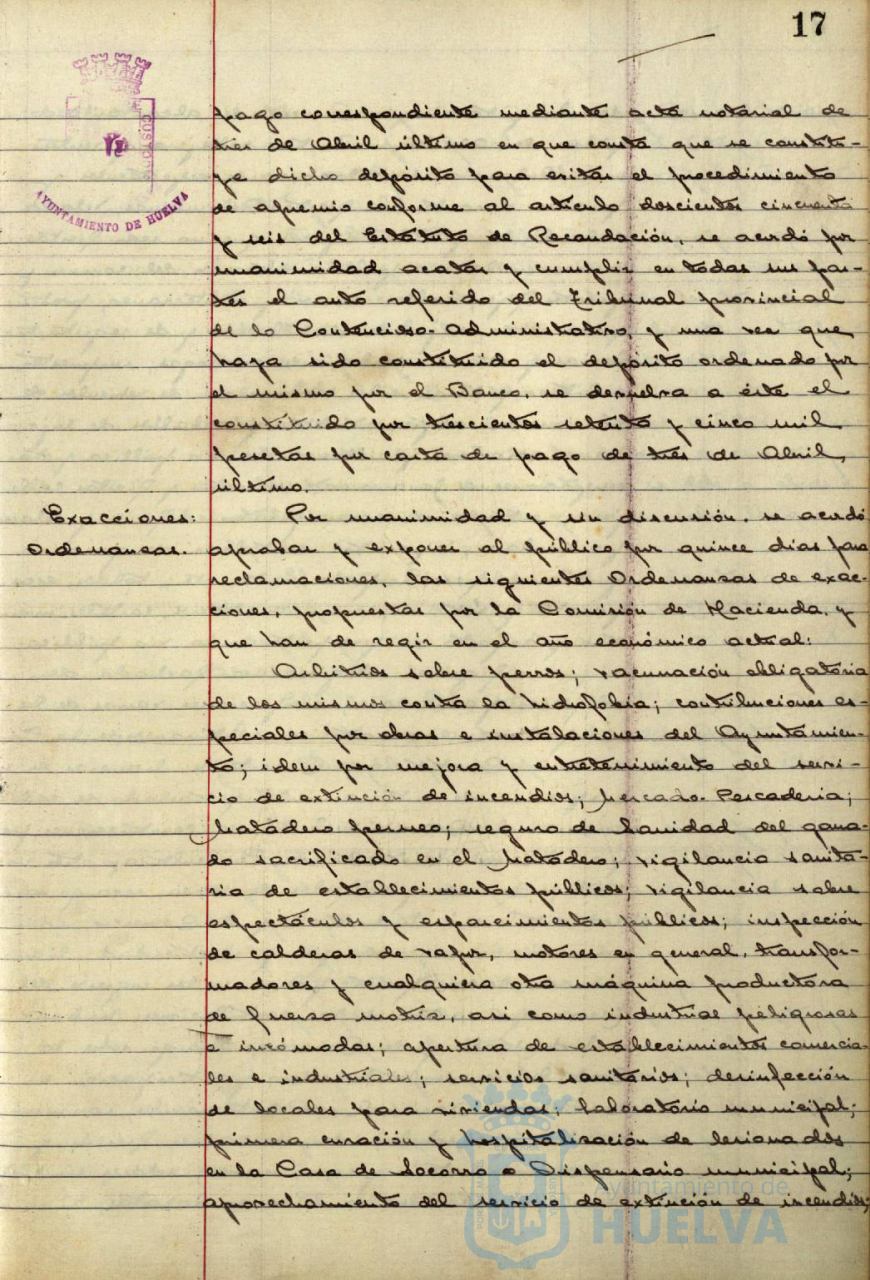 17
pago correspondiente mediante acta notarial de
tres de Abril último en que consta que se constitu-
ye dicho depósito para evitar el procedimiento
de apremio conforme al artículo doscientos cincuenta
y seis del Estatuto de Recaudación, se acordó por
unanimidad acatar y cumplir en todas sus par-
tes el auto referido del Tribunal provincial
de lo Contencioso-administrativo, y una vez que
haya sido constituido el depósito ordenado por
el mismo por el Banco, se devuelva a éste el
constituido por trescientos setenta y cinco mil
pesetas por carta de pago de tres de Abril,
último.
Exacciones:
Ordenanzas.
Por unanimidad y sin discusión, se acordó
aprobar y exponer al público por quince días para
reclamaciones, las siguientes Ordenanzas de exac-
ciones, propuestas por la Comisión de Hacienda, y
que han de regir en el año económico actual:
Arbitrios sobre perros; vacunación obligatoria
de los mismos contra la hidrofobia; contribuciones es-
peciales por obras e instalaciones del Ayuntamien-
to; idem por mejora y entretenimiento del servi-
cio de extinción de incendios; Mercado-Pescadería;
Matadero perneo; seguro de Sanidad del gana-
do sacrificado en el Matadero; vigilancia sanita-
ria de establecimientos públicos; vigilancia sobre
espectáculos y esparcimientos públicos; inspección
de calderas de vapor, motores en general, transfor-
madores y cualquiera otra máquina productora
de fuerza motriz, asi como industrias peligrosas
e incómodas; apertura de establecimientos comercia-
les e industriales; servicios sanitarios; desinfección
de locales para viviendas; laboratorio municipal;
primera curación y hospitalización de lesionados
en la Casa de Socorro o Dispensario municipal;
aprovechamiento del servicio de extinción de incendios;
AYUNTAMIENTO DE HUELVA
Ayuntamiento de
HUELVA